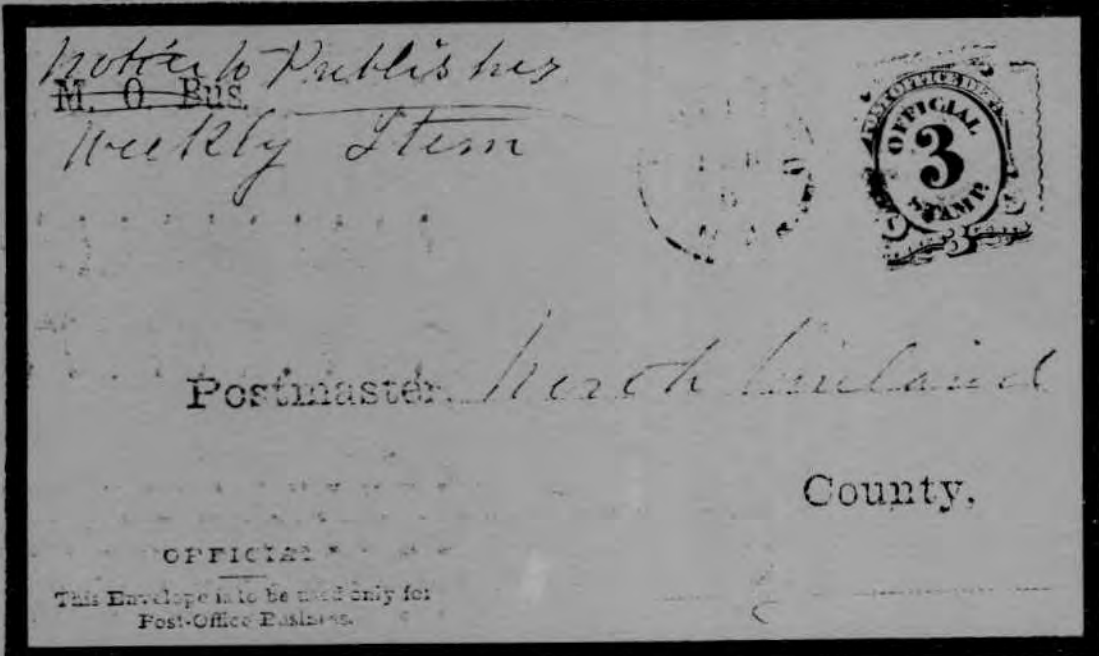 Notice to Publisher
M. O. Bus.
Weekly Item
POST OFFICE DEPT.
OFFICIAL
3
STAMP.
3
Postmaster, North
County,
OFFICIAL
This Envelope is to be used only for
Post-Office Business.